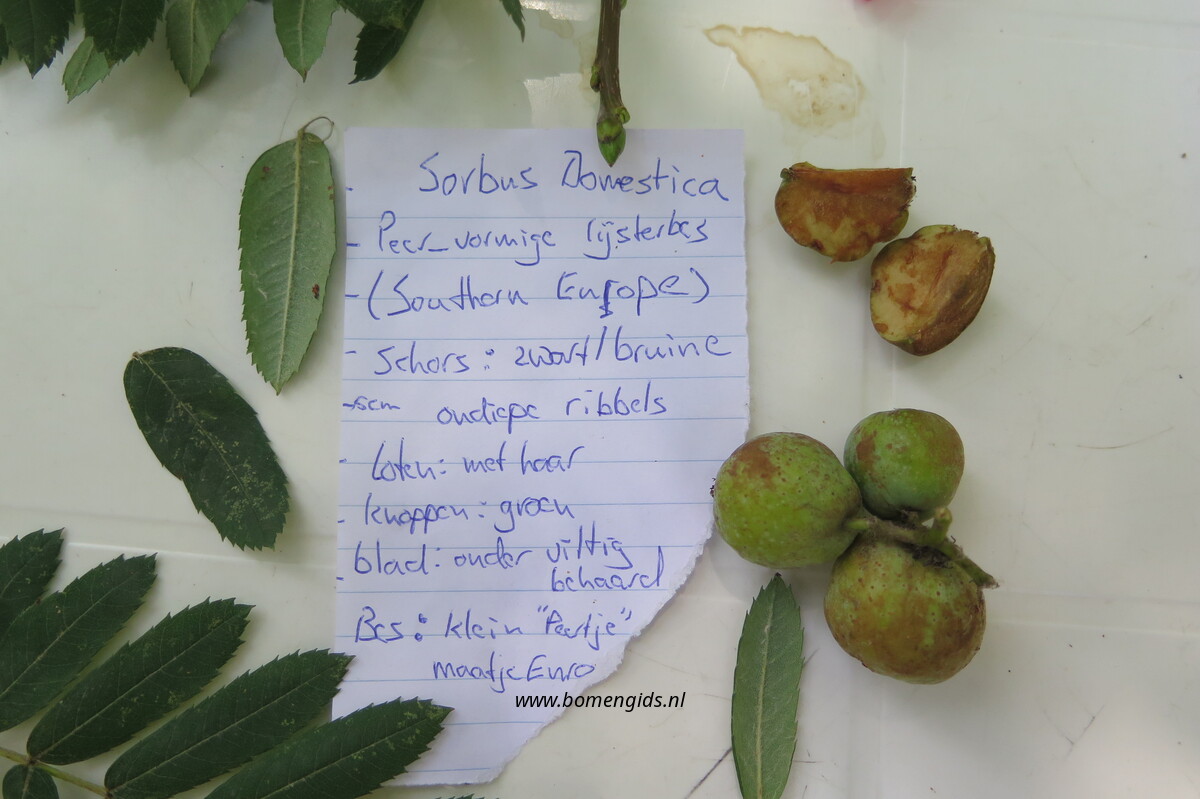 Sorbus Domestica
- Peer_vormige lijsterbes
- (Southern Europe)
- Schors: zwart/bruine
-5cm ondiepe ribbels
- Loten: met haar
- knoppen: groen
blad: onder viltig
- behaard
Bes: klein "Peertje"
maatje Euro
www.bomengids.nl